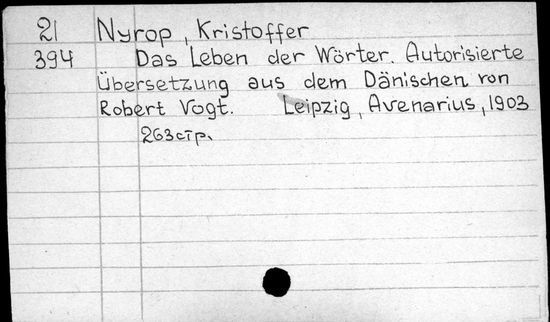 21 Nyrop, Kristoffer
394 Das Leben der Wörter. Autorisierte
Übersetzung aus dem Dänischen von
Robert Vogt. Leipzig, Avenarius, 1903
263 стр.